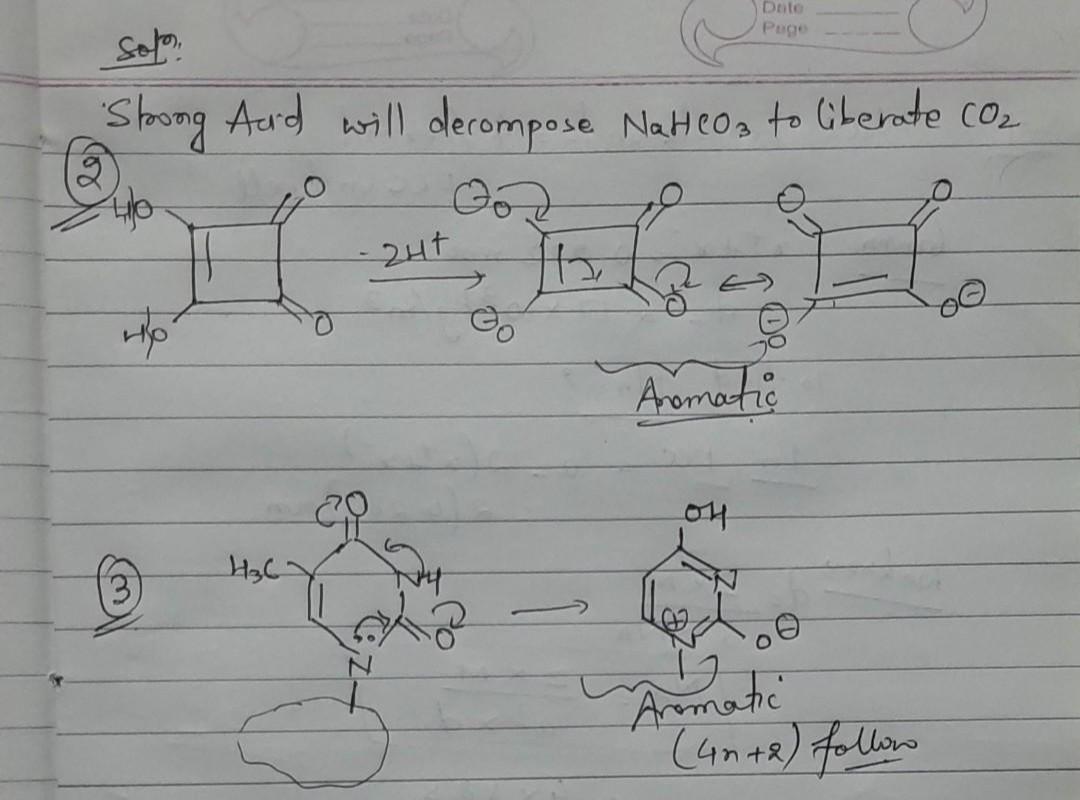 Date
Page
Soln:
Strong Acid will decompose NaHCO3 to liberate CO2
2
HO O ⊖O O O O
-2H+
HO O ⊖O O ⊖O O⊖
Aromatic
O OH
3 H3C NH N
O ⊕ O⊖
N N
Aromatic
(4n+2) follow